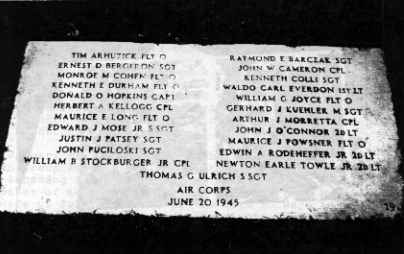 TIM ARHUTICK FLT O
ERNEST D BERGERON SGT
MONROE M COHEN FLT O
KENNETH E DURHAM FLT O
DONALD O HOPKINS CAPT
HERBERT A KELLOGG CPL
MAURICE E LONG FLT O
EDWARD J MOSE JR S SGT
JUSTIN J PATSEY SGT
JOHN PUCILOSKI SGT
WILLIAM B STOCKBURGER JR CPL
RAYMOND E BARCZAK SGT
JOHN W CAMERON CPL
KENNETH COLLI SGT
WALDO CARL EVERDON 1ST LT
WILLIAM G JOYCE FLT O
GERHARD J KUEHLER M SGT
ARTHUR J MORRETTA CPL
JOHN J O'CONNOR 2D LT
MAURICE J POWSNER FLT O
EDWIN A RODEHEFFER JR 2D LT
NEWTON EARLE TOWLE JR 2D LT
THOMAS G ULRICH S SGT
AIR CORPS
JUNE 20 1945